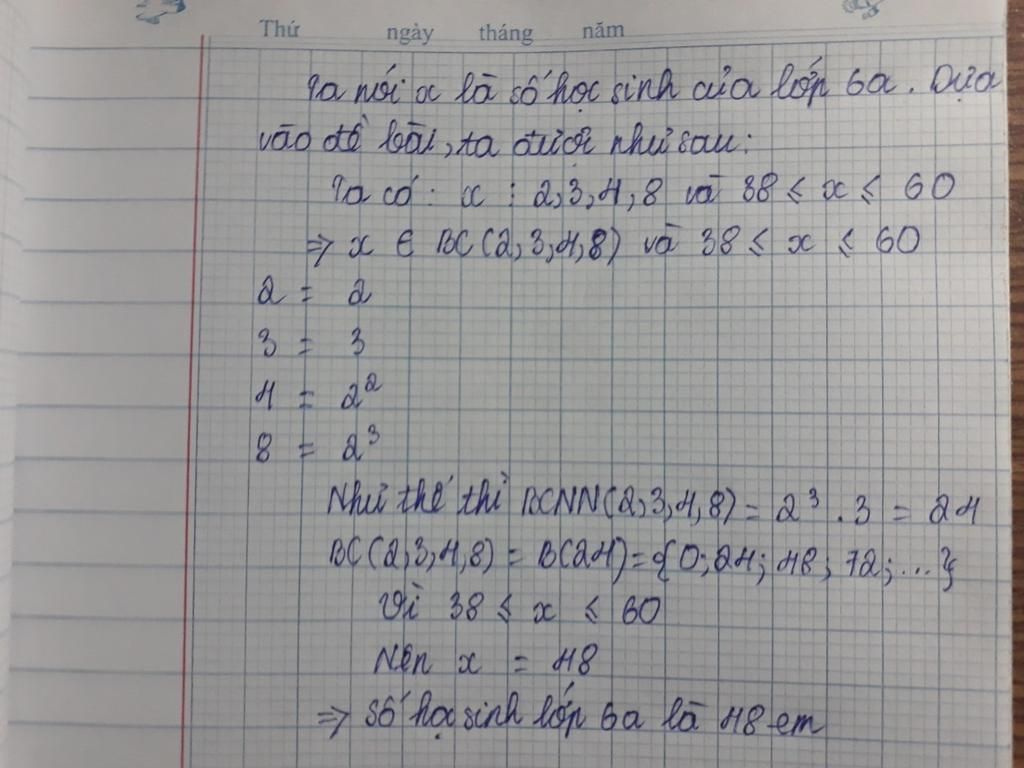 Thứ ngày tháng năm
Ta nói x là số học sinh của lớp 6a. Dựa
vào đề bài, ta được như sau:
Ta có: x ⋮ 2,3,4,8 và 38 ≤ x ≤ 60
⇒ x ∈ BC(2,3,4,8) và 38 ≤ x ≤ 60
2 = 2
3 = 3
4 = 2²
8 = 2³
Như thế thì BCNN(2,3,4,8) = 2³ . 3 = 24
BC(2,3,4,8) = B(24) = {0; 24; 48; 72; ...}
Vì 38 ≤ x ≤ 60
Nên x = 48
⇒ số học sinh lớp 6a là 48 em